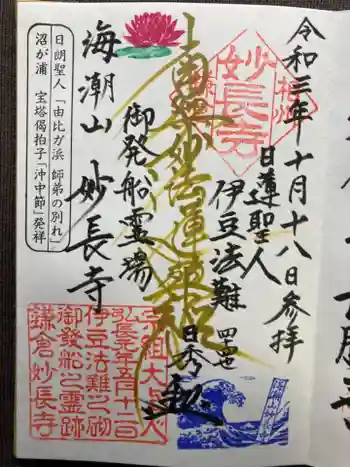 令和三年十月十八日参拝
相州
妙長寺
鎌倉
日蓮聖人
伊豆法難
四十四世
日秀
南無妙法蓮華経
御発船霊場
海潮山 妙長寺
日朗聖人「由比ガ浜 師弟の別れ」
沼が浦 宝塔偈拍子「沖中節」発祥
宗祖大聖人
弘長元年五月十二日
伊豆法難之砌
御發船之霊跡
鎌倉妙長寺